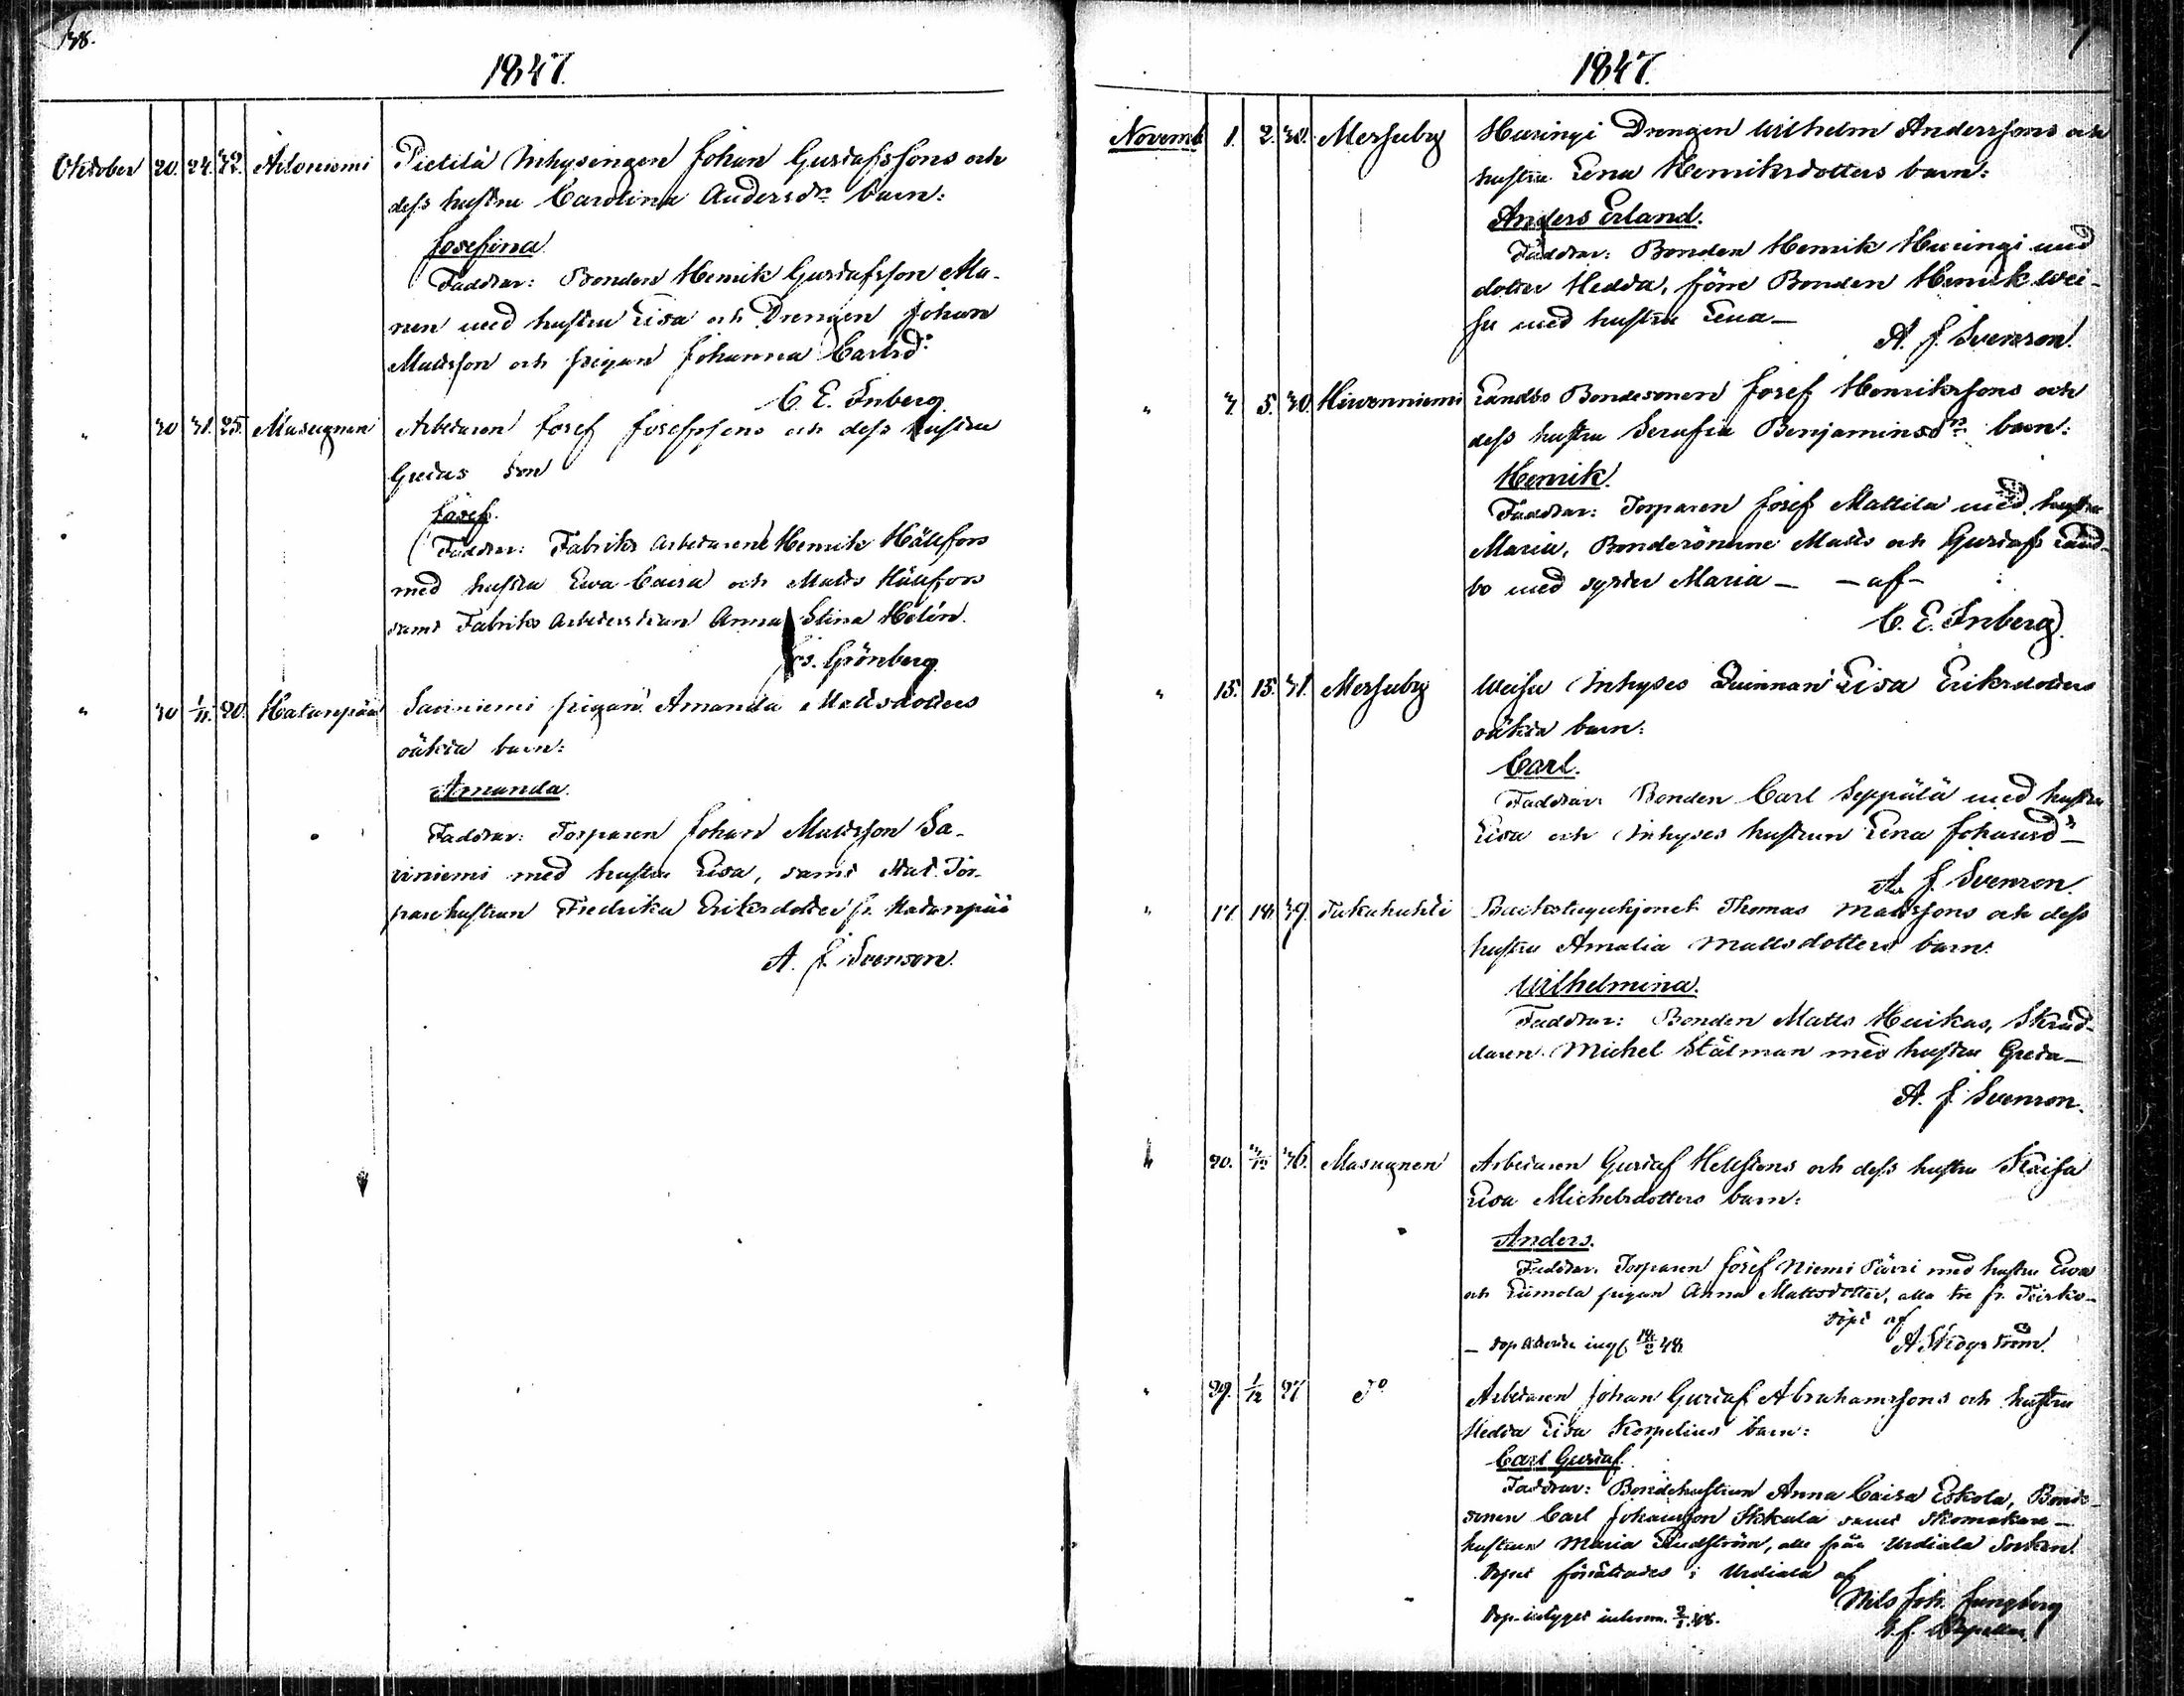 38.
1847.
Oktober 20. 24. 32. Aitoniemi Pietilä Inhysingen Johan Gustafssons och
dess hustru Carolina Andersdr barn:
Josefina
Faddrar: Bonden Henrik Gustafsson Ma-
nen med hustru Lisa och Drengen Johan
Mattsson och pigan Johanna Carlsdr
C. E. Inberg.
" 30 31. 25. Masugnen Arbetaren Josef Josefssons och dess hustru
Gretas son
Josef.
Faddrar: Fabriks arbetaren Henrik Hällfors
med hustru Ewa Caisa och Matts Hällfors
samt Fabriks arbeterskan Anna Stina Helén.
Jos. Grönberg.
" 30 1/11. 20. Hatanpää Saviniemi pigan Amanda Mattsdotters
oäkta barn:
Amanda.
Faddrar: Torparen Johan Mattsson Sa-
viniemi med hustru Lisa, samt Stat. Tor-
pare hustrun Fredrika Eriksdotter fr. Hatanpää
A. J. Svenson.
1847.
Novemb 1. 2. 32. Messuby Huringi Drengen Wilhelm Anderssons och
hustru Lena Henriksdotters barn:
Anders Erland.
Faddrar: Bonden Henrik Huringi med
dotter Hedda, förre Bonden Henrik Wei-
su med hustru Lena—
A. J. Svenson.
" 3. 5. 30. Hirvenniemi Landbo Bondesonen Josef Henrikssons och
dess hustru Serafia Benjaminsdr barn:
Henrik.
Faddrar: Torparen Josef Mattila med hustru
Maria, Bondesönerne Matts och Gustaf Land-
bo med syster Maria — — af —
C. E. Inberg.
" 15. 15. 31. Messuby Weisu Inhyses Quinnan Lisa Eriksdotters
oäkta barn:
Carl.
Faddrar: Bonden Carl Seppälä med hustru
Lisa och Inhyses hustrun Lena Johansdr—
A. J. Svenson.
" 17. 18. 39. Takahuhti Backstuguhjonet Thomas Mattssons och dess
hustru Amalia Mattsdotters barn:
Wilhelmina.
Faddrar: Bonden Matts Huikas, Skräd-
daren Michel Stålman med hustru Greta—
A. J. Svenson.
" 20. 36. Masugnen Arbetaren Gustaf Hellstens och dess hustru Kaisa
Lisa Michelsdotters barn:
Anders.
Faddrar: Torparen Josef Niemi Pärri med hustru Ewa
och Liimola pigan Anna Mattsdotter, alla tre fr.
döpt af
A. Skogström.
— 48.
" 29. 1/12 27 do Arbetaren Johan Gustaf Abrahamssons och hustru
Hedda Lisa Korpelius barn:
Carl Gustaf.
Faddrar: Bondehustrun Anna Caisa Eskola, Bonde-
sonen Carl Johansson samt Skomakare-
hustrun Maria Lindström, alla från Urdiala Socken.
Dopet förrättades i Urdiala af
Nils Joh. Ljungberg
Dop-intyget inkom. 2/1.48.